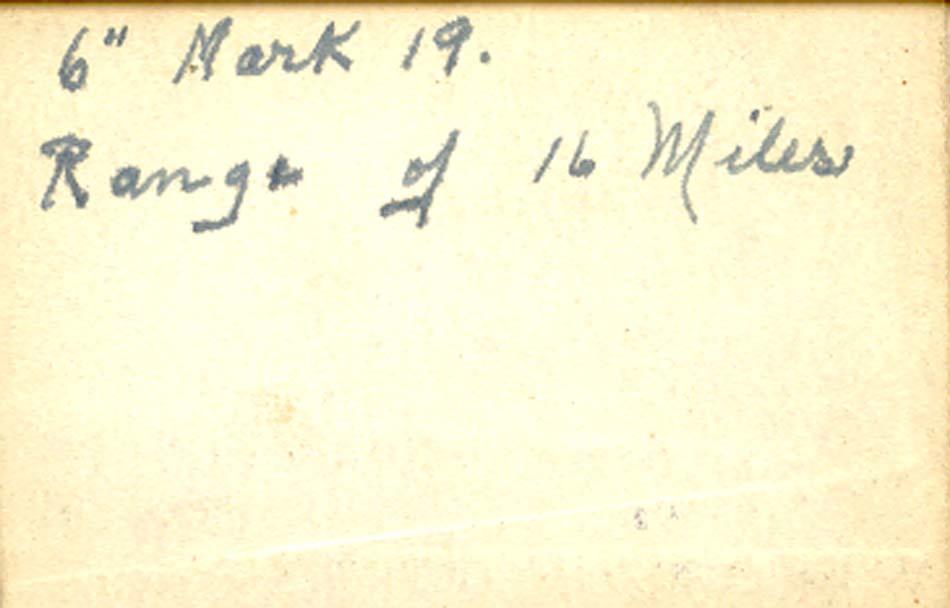 6" Mark 19.
Range of 16 Miles